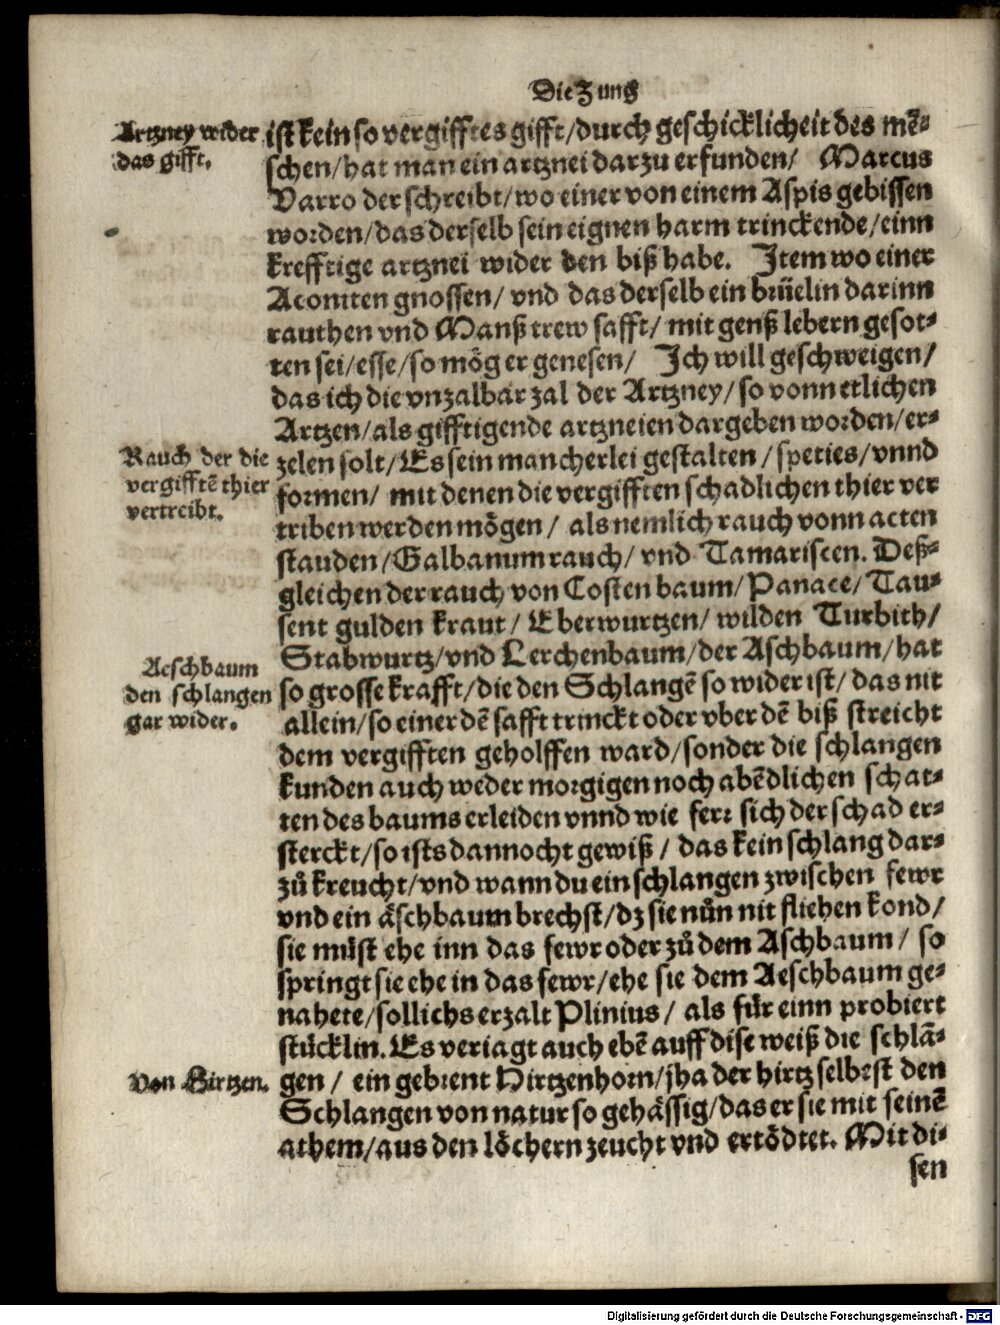 Die Zung
Artzney wider
das gifft.
ist kein so vergifftes gifft/durch geschicklicheit des mẽ-
schen/hat man ein artznei darzu erfunden/ Marcus
Varro der schreibt/wo einer von einem Aspis gebissen
worden/das derselb sein eignen harm trinckende/einn
krefftige artznei wider den biß habe. Item wo einer
Aconiten gnossen/ vnd das derselb ein brüelin darinn
rauthen vnd Manß trew safft/ mit genß lebern gesot-
ten sei/esse/so mög er genesen/ Ich will geschweigen/
das ich die vnzalbar zal der Artzney/so vonn etlichen
Artzen/als gifftigende artzneien dargeben worden/er-
Rauch der die
vergifftẽ thier
vertreibt.
zelen solt/Es sein mancherlei gestalten/speties/vnnd
formen/ mit denen die vergifften schadlichen thier ver
triben werden mögen/ als nemlich rauch vonn acten
stauden/Galbanum rauch/ vnd Tamariscen. Deß-
gleichen der rauch von Costen baum/Panace/Tau-
sent gulden kraut/Eberwurtzen/wilden Turbith/
Stabwurtz/vnd Lerchenbaum/der Aschbaum/hat
Aeschbaum
den schlangen
gar wider.
so grosse krafft/die den Schlangẽ so wider ist/das nit
allein/so einer dẽ safft trinckt oder vber dẽ biß streicht
dem vergifften geholffen ward/sonder die schlangen
kunden auch weder morgigen noch abẽdlichen schat-
ten des baums erleiden vnnd wie ferr sich der schad er-
sterckt/so ists dannocht gewiß/ das kein schlang dar-
zů kreucht/vnd wann du ein schlangen zwischen fewr
vnd ein äschbaum brechst/dz sie nůn nit fliehen kond/
sie müst ehe inn das fewr oder zů dem Aschbaum/ so
springt sie ehe in das fewr/ehe sie dem Aeschbaum ge-
nahete/sollichs erzalt Plinius/ als für einn probiert
stücklin. Es veriagt auch ebẽ auff dise weiß die schlã-
Von Hirtzen.
gen/ ein gebrent Hirtzenhorn/jha der hirtz selbrst den
Schlangen von natur so gehässig/das er sie mit seinẽ
athem/aus den löchern zeucht vnd ertödtet. Mit di-
sen
Digitalisierung gefördert durch die Deutsche Forschungsgemeinschaft - DFG